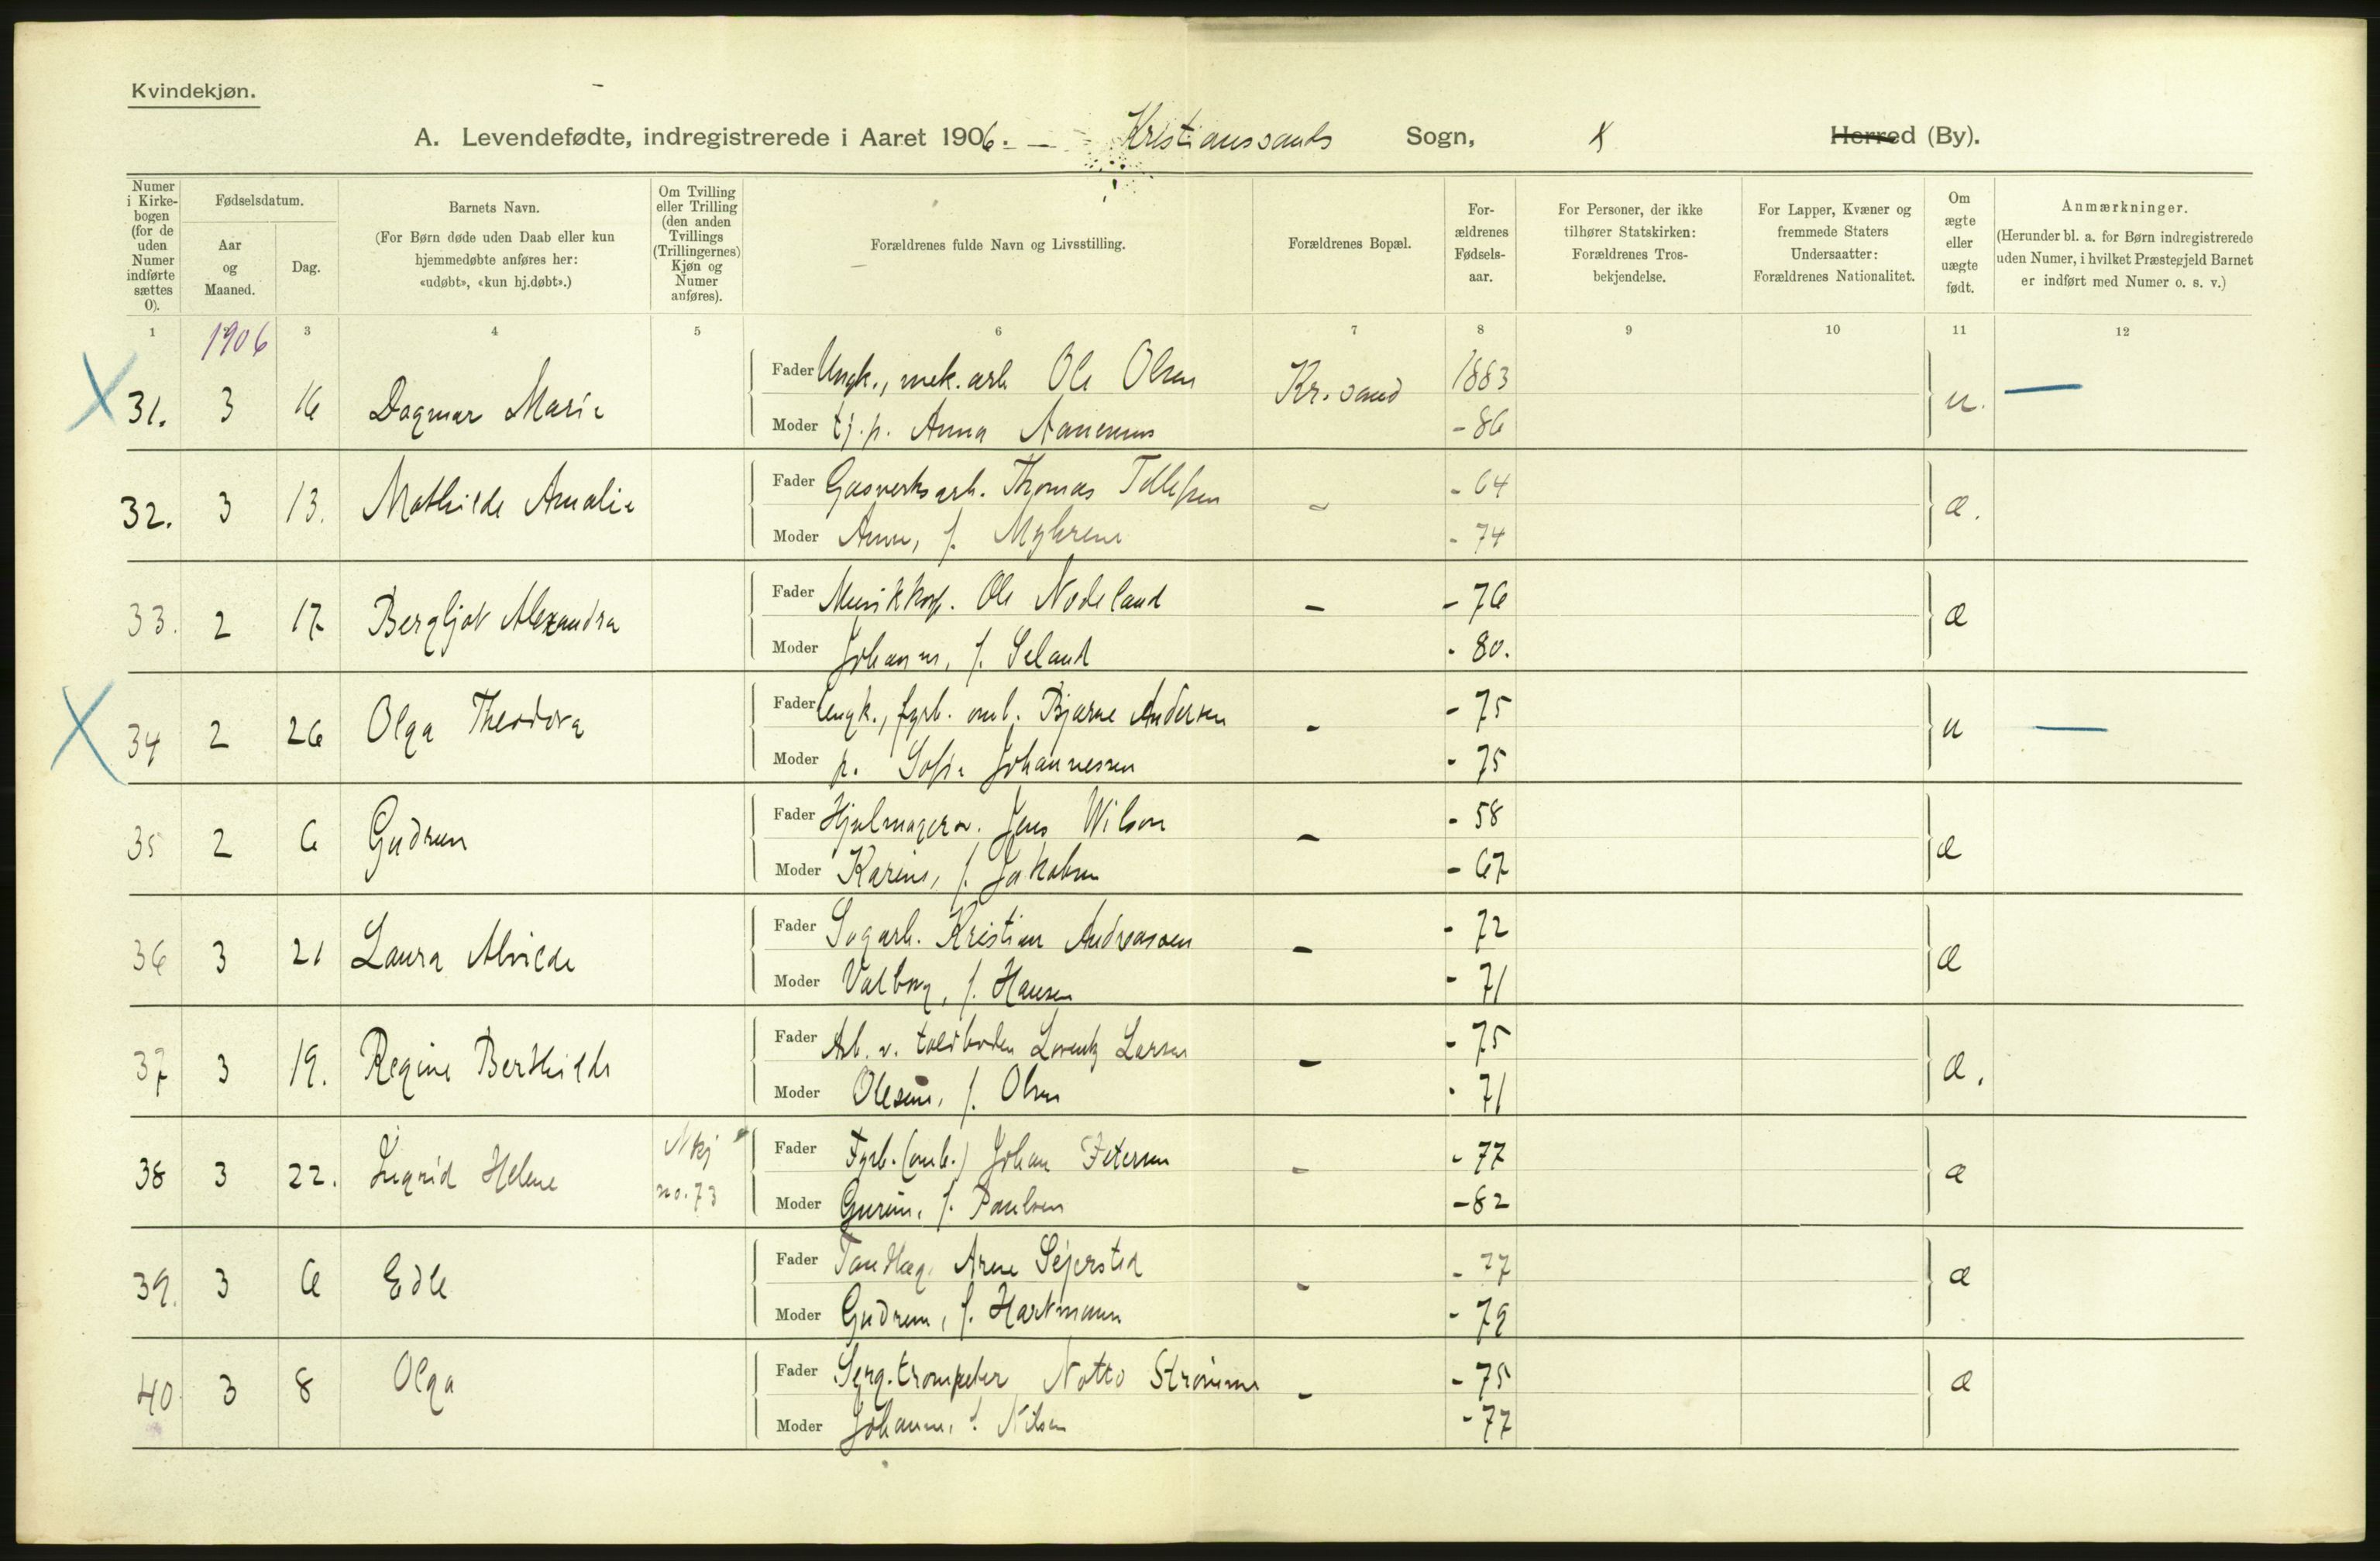 Kvindekjøn.
A. Levendefødte, indregistrerede i Aaret 1906. Kristianssands Sogn, Herred (By).
Numer i Kirke-bogen (for de uden Numer indførte sættes 0).
Fødselsdatum.
Aar og Maaned.
Dag.
Barnets Navn.
(For Børn døde uden Daab eller kun hjemmedøbte anføres her: «udøbt», «kun hj.døbt».)
Om Tvilling eller Trilling (den anden Tvillings (Trillingernes) Kjøn og Numer anføres).
Forældrenes fulde Navn og Livsstilling.
Forældrenes Bopæl.
For-ældrenes Fødsels-aar.
For Personer, der ikke tilhører Statskirken: Forældrenes Tros-bekjendelse.
For Lapper, Kvæner og fremmede Staters Undersaatter: Forældrenes Nationalitet.
Om ægte eller uægte født.
Anmærkninger.
(Herunder bl. a. for Børn indregistrerede uden Numer, i hvilket Præstegjeld Barnet er indført med Numer o. s. v.)
1 3 4 5 6 7 8 9 10 11 12
1906
31. 3 16 Dagmar Marie Fader Ungk., mek. arb. Ole Olsen Kr.sand 1883 u. —
Moder tj. p. Anna -86
32. 3 13. Mathilde Amalie Fader Gasverksarb. Thomas Tellefsen - -64 æ.
Moder Anne, f. Myhrene - 74
33. 2 17 Bergljot Alexandra Fader Ole Nodeland - - 76 æ
Moder Johanne, f. Seland - 80.
34 2 26 Olga Theodora Fader Ungk., fyrb. omb. Bjarne Andersen - - 75 u —
Moder p. Sofie Johannessen - 75
35 2 6 Gudrun Fader Hjulmagersv. Jens Wilson - - 58 æ
Moder Karine, f. Jakobsen - 67
36 3 21 Laura Alvilde Fader Sagarb. Kristian Andreassen - - 72 æ
Moder Valborg, f. Hansen - 71
37 3 19. Regine Berthilde Fader Arb. v. toldboden Lorentz Larsen - - 75 æ.
Moder Olesine, f. Olsen - 71
38 3 22. Ingrid Helene Mkj no. 73 Fader Fyrb. (omb.) Johan Petersen - - 77 æ
Moder Gurine, f. Paulsen -82
39. 3 6 Edle Fader Tandlæg. Arne Sejersted - - 77 æ
Moder Gudrun, f. Hartmann - 79
40 3 8 Olga Fader Serg. trompeter Notto Strømme - - 75 æ
Moder Johanne, f. Nilsen -77